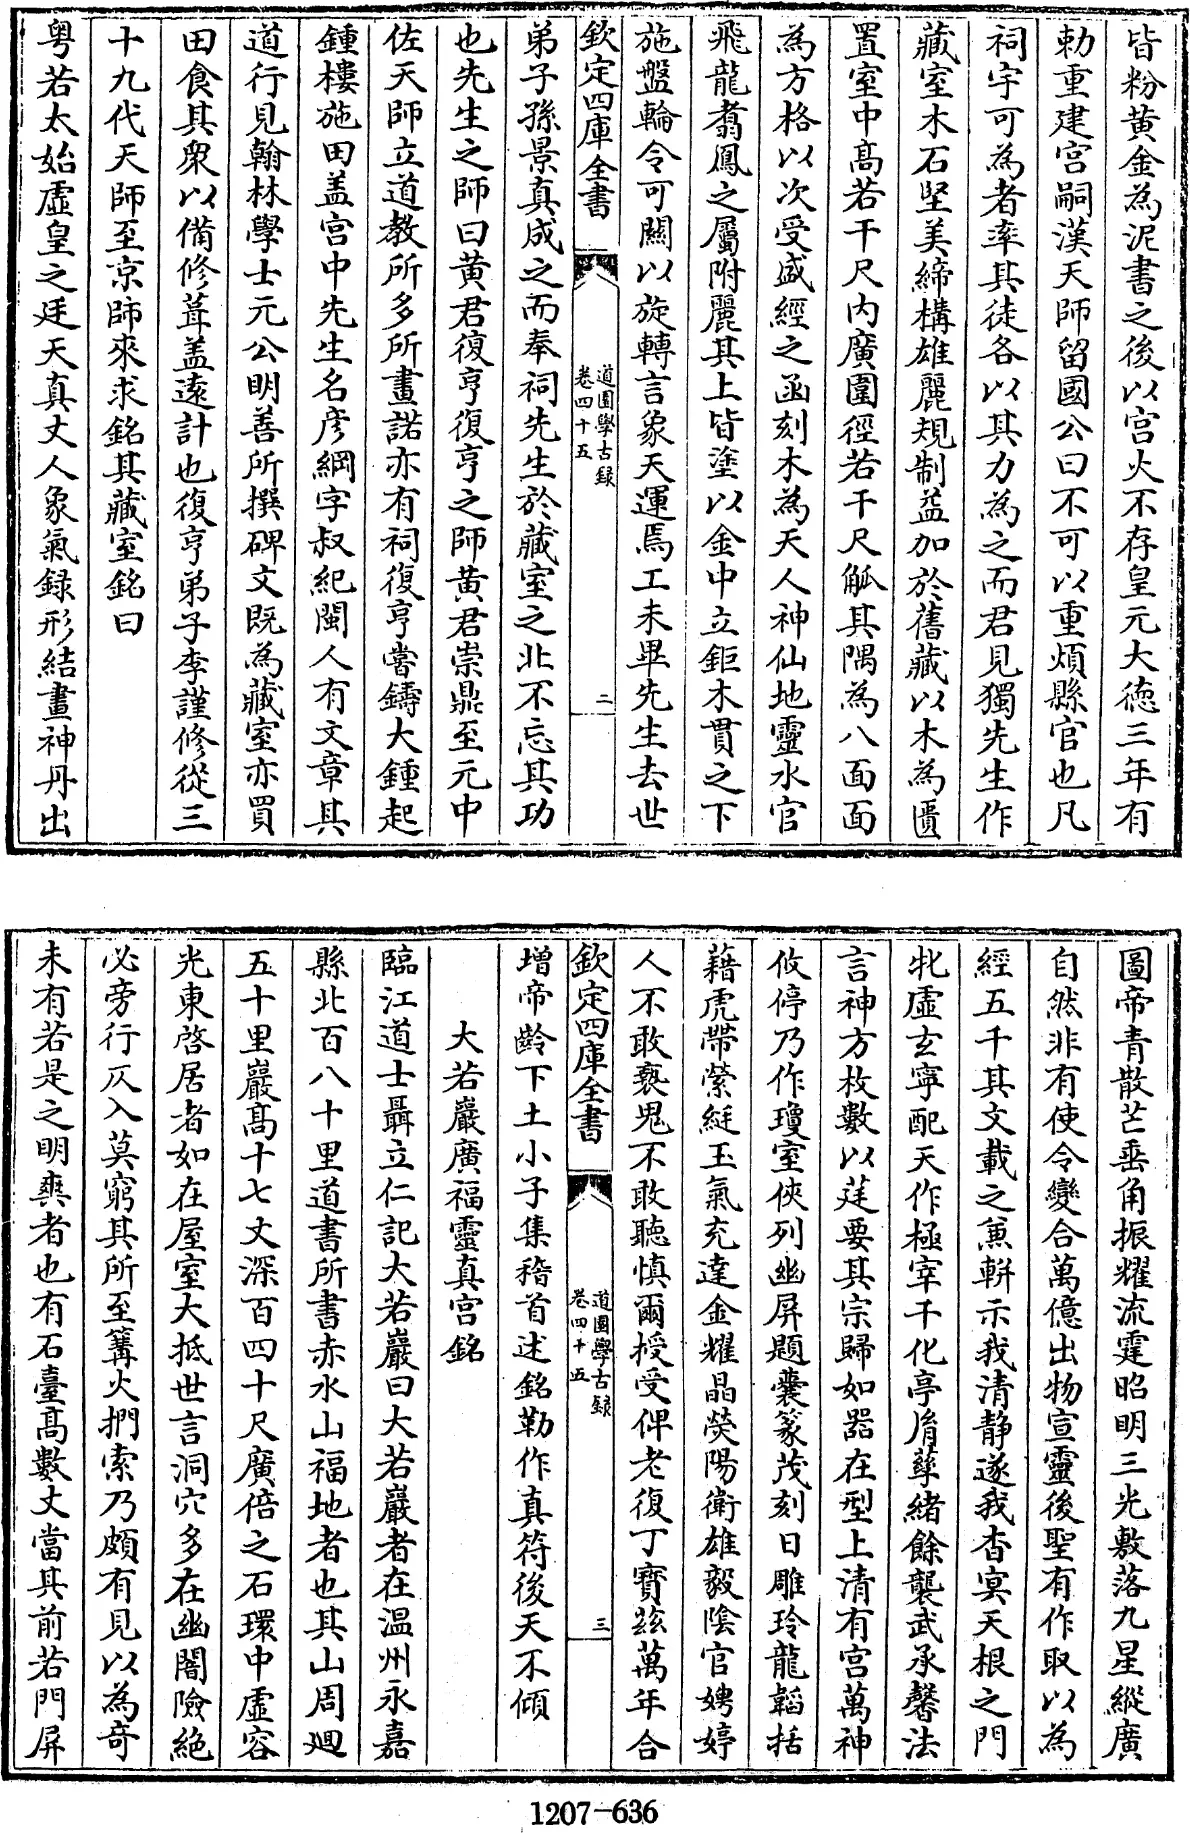 皆粉黄金為泥書之後以宫火不存皇元大徳三年有
勅重建宫嗣漢天師留國公曰不可以重煩縣官也凡
祠宇可為者率其徒各以其力為之而君見獨先生作
藏室木石堅美締構雄麗規制益加於舊藏以木為匱
置室中髙若干尺内廣圍徑若干尺觚其隅為八面面
為方格以次受盛經之函刻木為天人神仙地靈水官
飛龍翥鳳之屬附麗其上皆塗以金中立鉅木貫之下
施盤輪令可關以旋轉言象天運焉工未畢先生去世
欽定四庫全書
道園學古録
卷四十五
二
弟子孫景真成之而奉祠先生於藏室之北不忘其功
也先生之師曰黄君復亨復亨之師黄君崇鼎至元中
佐天師立道教所多所畫諾亦有祠復亨嘗鑄大鍾起
鍾樓施田盖宫中先生名彦綱字叔紀閩人有文章其
道行見翰林學士元公明善所撰碑文既為藏室亦買
田食其衆以備修葺盖逺計也復亨弟子李謹修從三
十九代天師至京師來求銘其藏室銘曰
粤若太始虚皇之廷天真丈人象氣録形結畫神丹出
圖帝青散芒垂角振耀流霆昭明三光敷落九星縱廣
自然非有使令變合萬億出物宣靈後聖有作取以為
經五千其文載之兼輧示我清静遂我杳冥天根之門
牝虚玄寧配天作極宰千化亭胤孳緒餘襲武承馨法
言神方枚數以莛要其宗歸如器在型上清有宫萬神
攸停乃作瓊室俠列幽屏題囊篆茂刻日雕玲龍韜括
藉虎帶縈綎玉氣充達金耀晶熒陽衛雄毅陰官娉婷
人不敢褻鬼不敢聽慎爾授受俾老復丁寳兹萬年合
欽定四庫全書
道園學古録
卷四十五
三
增帝齡下土小子集稽首述銘勒作真符後天不傾
大若巖廣福靈真宫銘
臨江道士聶立仁記大若巖曰大若巖者在温州永嘉
縣北百八十里道書所書赤水山福地者也其山周廻
五十里巖髙十七丈深百四十尺廣倍之石環中虚容
光東啓居者如在屋室大抵世言洞穴多在幽闇險絶
必旁行仄入莫窮其所至篝火捫索乃頗有見以為奇
未有若是之明爽者也有石臺髙數丈當其前若門屏
1207-636